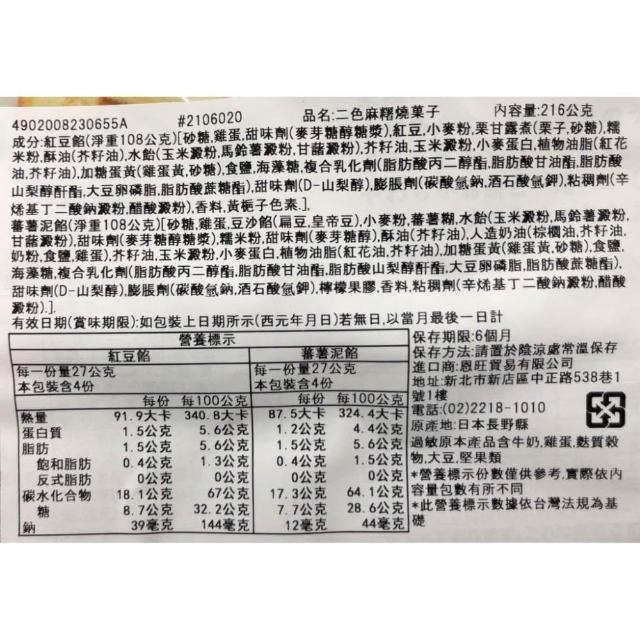 4902008230655A #2106020 品名:二色麻糬燒菓子 內容量:216公克
成分:紅豆餡(淨重108公克)[砂糖,雞蛋,甜味劑(麥芽糖醇糖漿),紅豆,小麥粉,栗甘露煮(栗子,砂糖),糯
米粉,酥油(芥籽油),水飴(玉米澱粉,馬鈴薯澱粉,甘藷澱粉),玉米澱粉,小麥蛋白,植物油脂(紅花
油,芥籽油),加糖蛋黃(雞蛋黃,砂糖),食鹽,海藻糖,複合乳化劑(脂肪酸丙二醇酯,脂肪酸甘油酯,脂肪酸
山梨醇酐酯,大豆卵磷脂,脂肪酸蔗糖酯),甜味劑(D-山梨醇),膨脹劑(碳酸氫鈉,酒石酸氫鉀),粘稠劑(辛
烯基丁二酸鈉澱粉,醋酸澱粉),香料,黃梔子色素.]
蕃薯泥餡(淨重108公克)[砂糖,雞蛋,豆沙餡(扁豆,皇帝豆),小麥粉,蕃薯糊,水飴(玉米澱粉,馬鈴薯澱粉,
甘藷澱粉),甜味劑(麥芽糖醇糖漿),糯米粉,甜味劑(麥芽糖醇),酥油(芥籽油),人造奶油(棕櫚油,芥籽油,
奶粉,食鹽),芥籽油,玉米澱粉,小麥蛋白,植物油脂(紅花油,芥籽油),加糖蛋黃(雞蛋黃,砂糖),食鹽,
海藻糖,複合乳化劑(脂肪酸丙二醇酯,脂肪酸甘油酯,脂肪酸山梨醇酐酯,大豆卵磷脂,脂肪酸蔗糖酯),
甜味劑(D-山梨醇),膨脹劑(碳酸氫鈉,酒石酸氫鉀),檸檬果膠,香料,粘稠劑(辛烯基丁二酸鈉澱粉,醋酸
澱粉).]
有效日期(賞味期限):如包裝上日期所示(西元年月日)若無日,以當月最後一日計
營養標示
紅豆餡 蕃薯泥餡
每一份量27公克 每一份量27公克
本包裝含4份 本包裝含4份
每份 每100公克 每份 每100公克
熱量 91.9大卡 340.8大卡 87.5大卡 324.4大卡
蛋白質 1.5公克 5.6公克 1.2公克 4.4公克
脂肪 1.5公克 5.6公克 1.5公克 5.6公克
飽和脂肪 0.4公克 1.3公克 0.4公克 1.5公克
反式脂肪 0公克 0公克 0公克 0公克
碳水化合物 18.1公克 67公克 17.3公克 64.1公克
糖 8.7公克 32.2公克 7.7公克 28.6公克
鈉 39毫克 144毫克 12毫克 44毫克
保存期限:6個月
保存方法:請置於陰涼處常溫保存
進口商:恩旺貿易有限公司
地址:新北市新店區中正路538巷1
號1樓
電話:(02)2218-1010
原產地:日本長野縣
過敏原本產品含牛奶,雞蛋,麩質穀
物,大豆,堅果類
*營養標示份數僅供參考,實際依內
容量包數有所不同
*此營養標示數據依台灣法規為基
礎